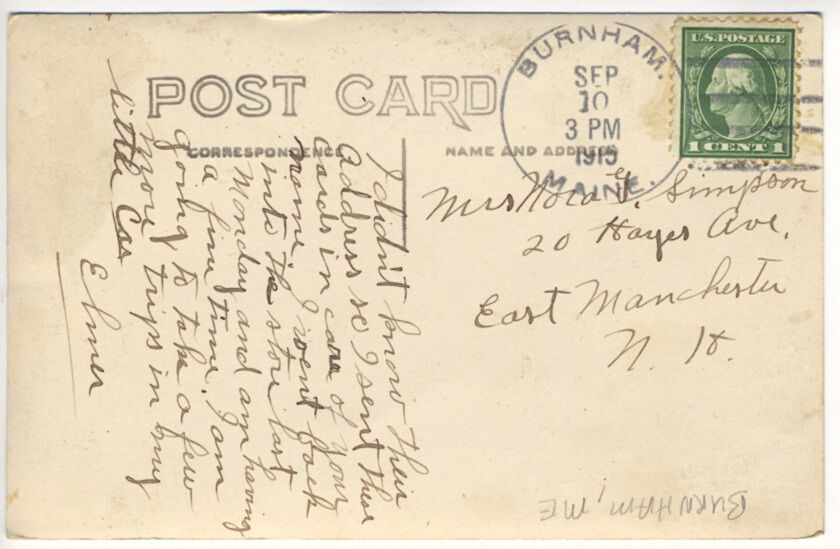 POST CARD
CORRESPONDENCE
NAME AND ADDRESS
BURNHAM.
SEP
10
3 PM
1915
MAINE.
U.S. POSTAGE
1 CENT 1
I didn't know their
Address so I sent these
cards in care of your
name. I went back
into the store last
Monday and am having
a fine time. I am
going to take a few
more trips in my
little Car
Elmer
Mrs Nora G. Simpson
20 Hayes Ave.
East Manchester
N. H.
BURNHAM, ME